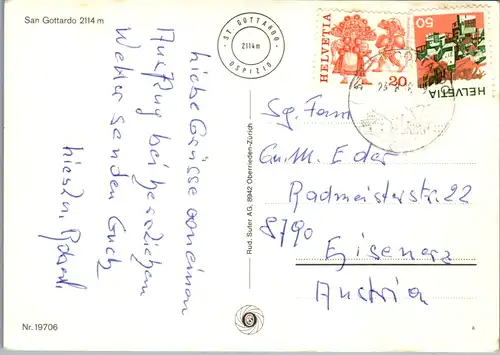 San Gottardo 2114 m
ST. GOTTARDO
2114 m
OSPIZIO
HELVETIA
20
50
HELVETIA
Liebe Grüsse von einem
Ausflug bei herrlichem
Wetter senden Euch
Rud. Suter AG, 8942 Oberrieden-Zürich
Sg. Fam.
G. M. Eder
Radmeisterstr. 22
8790
Eisenerz
Austria
Nr. 19706